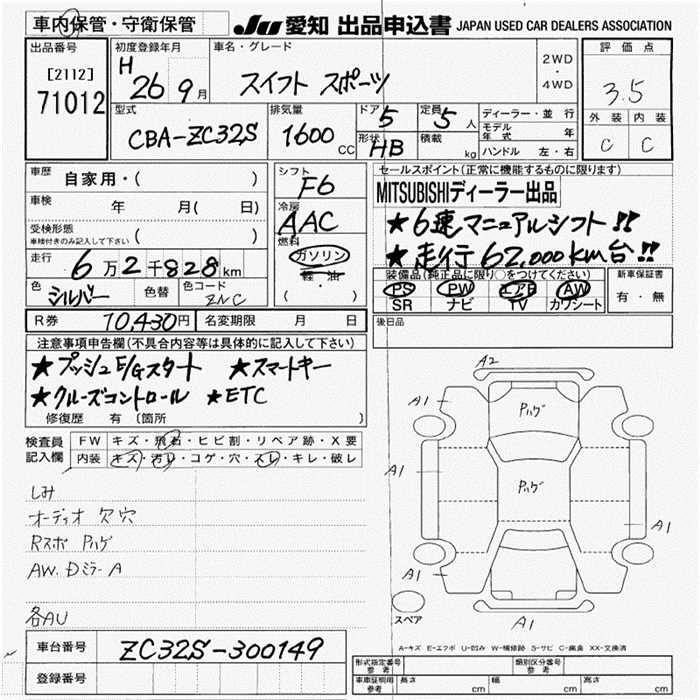 車内保管・守衛保管
JU 愛知 出品申込書 JAPAN USED CAR DEALERS ASSOCIATION
出品番号
[2112]
71012
初度登録年月
H 26 9月
車名・グレード
スイフト スポーツ
2WD
・
4WD
評価点
3.5
外装 内装
C C
型式
CBA-ZC32S
排気量
1600 CC
ドア 5
形状 HB
定員 5 人
積載 kg
ディーラー・並行
モデル年式 年
ハンドル 左・右
車歴 自家用・( )
車検 年 月( 日)
受検形態
車検付きのみ記入して下さい ( )
走行 6万2千828km
色 シルバー
色替
色コード ZNC
シフト
F6
冷房
AAC
燃料
ガソリン
軽・油
( )
セールスポイント(正常に機能するものに限ります)
MITSUBISHIディーラー出品
★6速マニュアルシフト!!
★走行62,000km台!!
装備品(純正品に限り○をつけてください)
PS PW エアB AW
SR ナビ TV カワシート
新車保証書
有・無
R券 10,430円
名変期限 月 日
後日品
注意事項申告欄(不具合内容等は具体的に記入して下さい)
★プッシュE/Gスタート ★スマートキー
★クルーズコントロール ★ETC
修復歴 有〔箇所 〕
検査員
記入欄
FW キズ・飛石・ヒビ割・リペア跡・X要
内装 キズ・汚れ・コゲ・穴・スレ・キレ・破レ
しみ
オーディオ 欠 穴
Rスポ ハゲ
AW. Dミラー A
各AU
A2
A1
ハゲ
A1
ハゲ
A1
A1
A1
スペア
A1
A-キズ E-エクボ U-凹み W-補修跡 S-サビ C-腐食 XX-交換済
車台番号 ZC32S-300149
登録番号
形式指定番号
参考
類別区分番号
参考
車庫証明用
参考
長さ cm
幅 cm
高さ cm